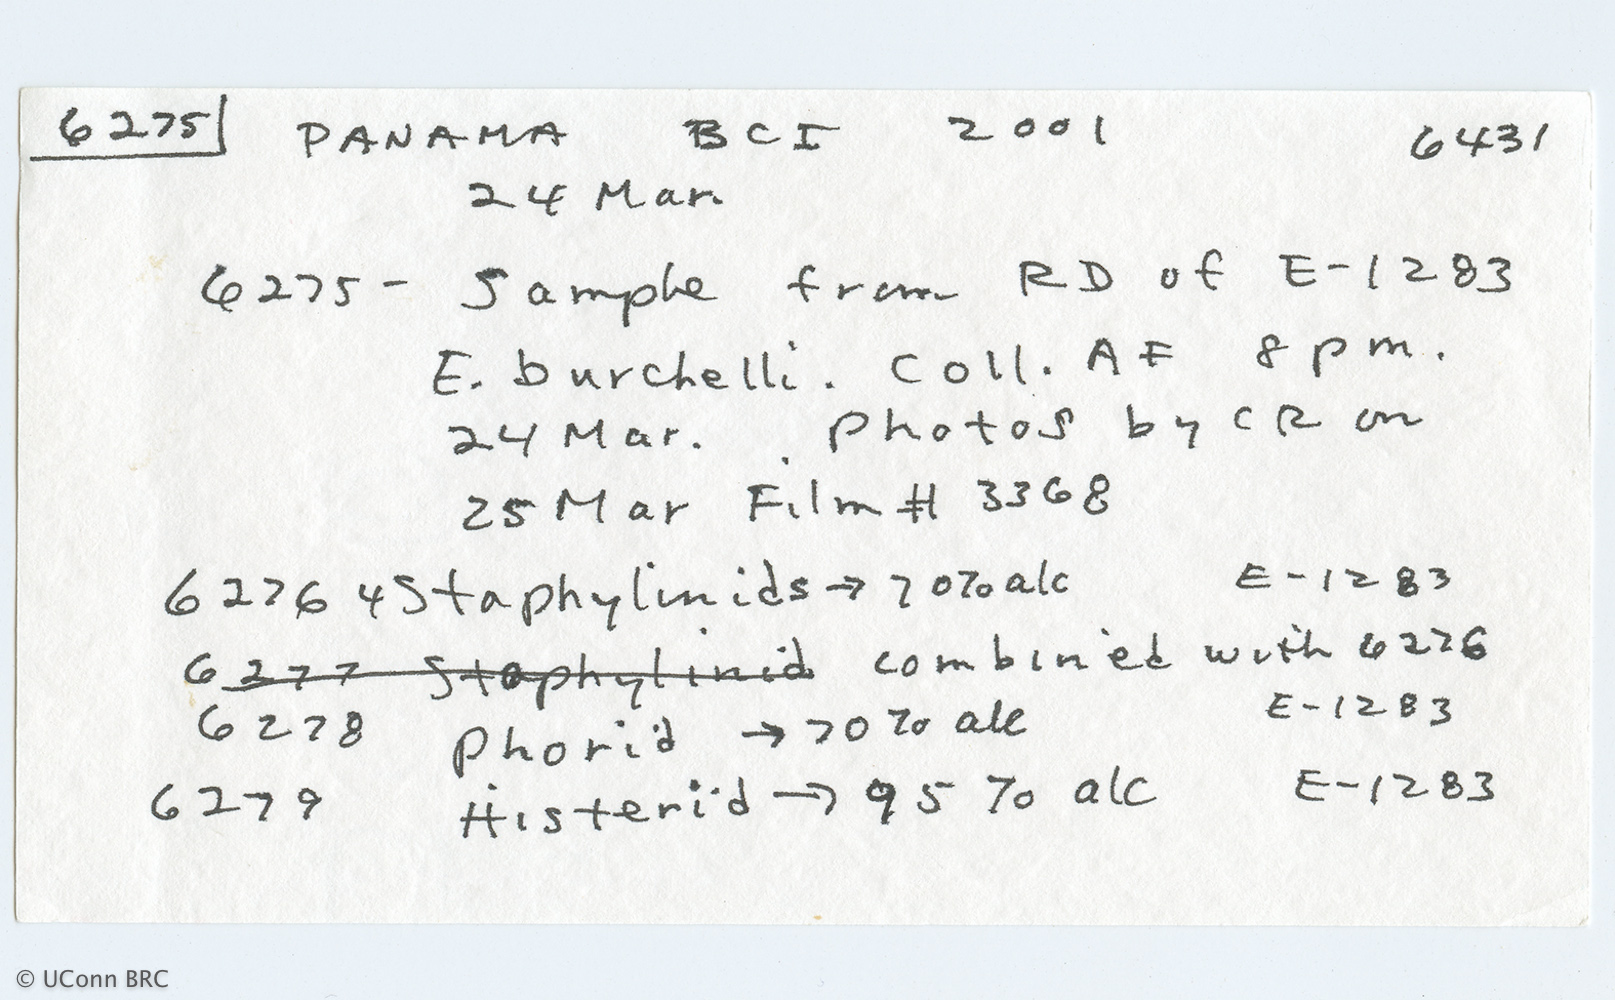 6275 PANAMA BCI 2001 6431
24 Mar.
6275 - Sample from RD of E-1283
E. burchelli. Coll. AF 8 pm.
24 Mar. Photos by CR on
25 Mar Film # 3368
6276 4 Staphylinids → 70% alc E-1283
6277 Staphylinid combined with 6276
6278 Phorid → 70% alc E-1283
6279 Histerid → 95% alc E-1283
© UConn BRC